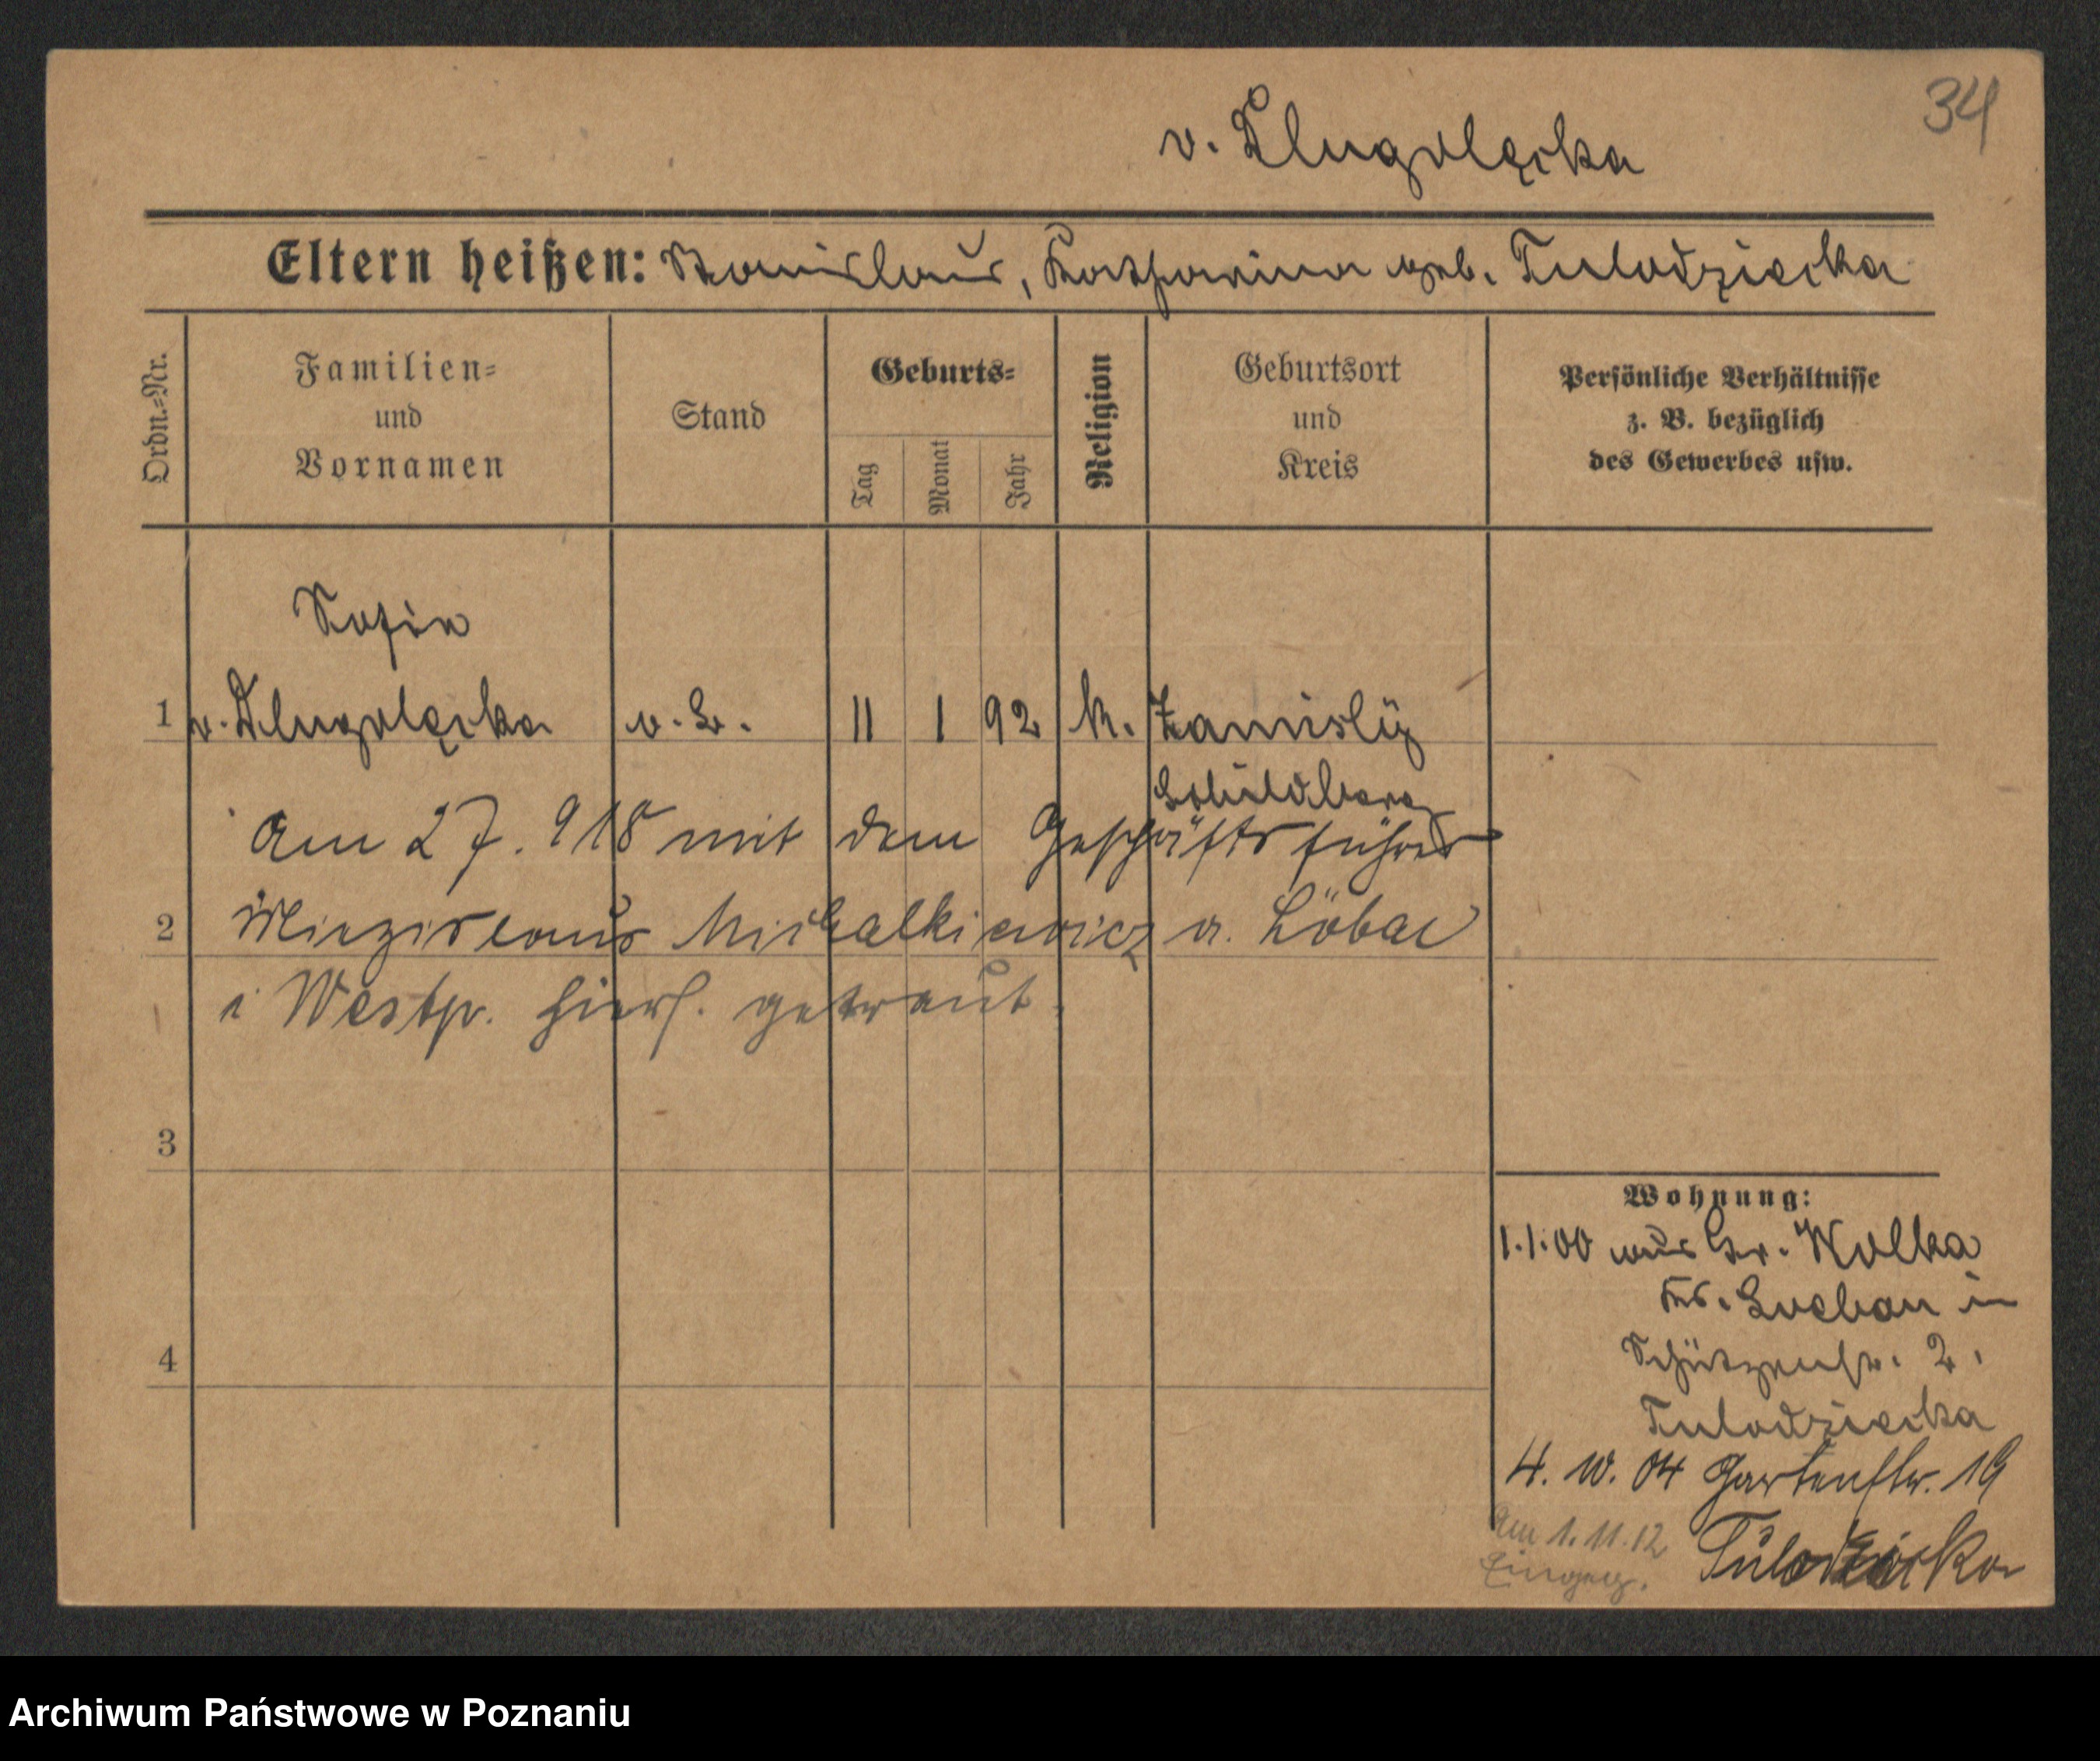 34
v. Dlugolęcka
Eltern heißen: Stanislaus, Katharina geb. Tulodziecka
Ordn.-Nr.
Familien-
und
Vornamen
Stand
Geburts-
Tag
Monat
Jahr
Religion
Geburtsort
und
Kreis
Persönliche Verhältnisse
z. B. bezüglich
des Gewerbes usw.
Sofia
1 v. Dlugolęcka 11 1 92 k. Zamisly
Schildberg
Am 27. 918 mit dem Geschäftsführer
2 Miezislaus Michalkiewicz a. Löbau
i Westpr. hiers. getraut.
3
4
Wohnung:
1.1.00 aus Gr. Wolka
in
Schützenstr. 2.
Tulodziecka
4. 10. 04 Gartenstr. 19
Tulodziecka
Am 1.11.12
Archiwum Państwowe w Poznaniu